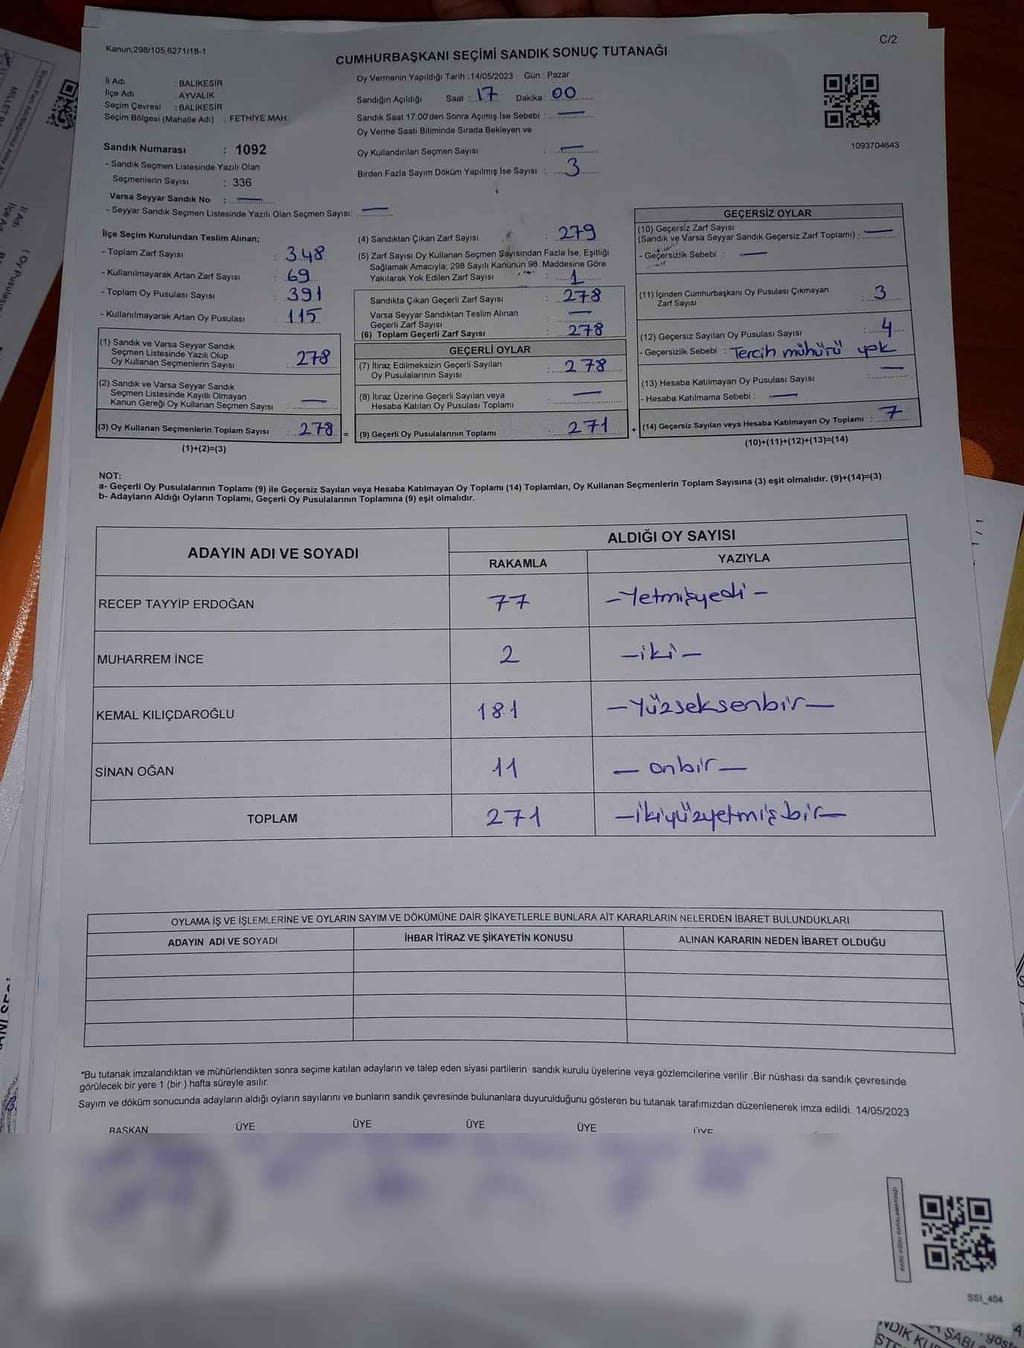 Kanun;298/105,6271/18-1
C/2
CUMHURBAŞKANI SEÇİMİ SANDIK SONUÇ TUTANAĞI
İl Adı : BALIKESİR
İlçe Adı : AYVALIK
Seçim Çevresi : BALIKESİR
Seçim Bölgesi (Mahalle Adı) : FETHİYE MAH.
Oy Vermenin Yapıldığı Tarih :14/05/2023 Gün : Pazar
Sandığın Açıldığı Saat : 17 Dakika : 00
Sandık Saat 17:00'den Sonra Açımış İse Sebebi : —
Oy Verme Saati Bitiminde Sırada Bekleyen ve
Oy Kullandırılan Seçmen Sayısı : —
Birden Fazla Sayım Döküm Yapılmış İse Sayısı : 3
1093704643
Sandık Numarası : 1092
- Sandık Seçmen Listesinde Yazılı Olan
Seçmenlerin Sayısı : 336
Varsa Seyyar Sandık No : —
- Seyyar Sandık Seçmen Listesinde Yazılı Olan Seçmen Sayısı: —
İlçe Seçim Kurulundan Teslim Alınan;
- Toplam Zarf Sayısı : 348
- Kullanılmayarak Artan Zarf Sayısı : 69
- Toplam Oy Pusulası Sayısı : 391
- Kullanılmayarak Artan Oy Pusulası : 115
(1) Sandık ve Varsa Seyyar Sandık
Seçmen Listesinde Yazılı Olup
Oy Kullanan Seçmenlerin Sayısı : 278
(2) Sandık ve Varsa Seyyar Sandık
Seçmen Listesinde Kayıtlı Olmayan
Kanun Gereği Oy Kullanan Seçmen Sayısı : —
(3) Oy Kullanan Seçmenlerin Toplam Sayısı : 278 =
(1)+(2)=(3)
(4) Sandıktan Çıkan Zarf Sayısı : 279
(5) Zarf Sayısı Oy Kullanan Seçmen Sayısından Fazla İse, Eşitliği
Sağlamak Amacıyla; 298 Sayılı Kanunun 98. Maddesine Göre
Yakılarak Yok Edilen Zarf Sayısı : 1
Sandıkta Çıkan Geçerli Zarf Sayısı : 278
Varsa Seyyar Sandıktan Teslim Alınan
Geçerli Zarf Sayısı : —
(6) Toplam Geçerli Zarf Sayısı : 278
GEÇERLİ OYLAR
(7) İtiraz Edilmeksizin Geçerli Sayılan
Oy Pusulalarının Sayısı : 278
(8) İtiraz Üzerine Geçerli Sayılan veya
Hesaba Katılan Oy Pusulası Toplamı : —
(9) Geçerli Oy Pusulalarının Toplamı : 271 +
GEÇERSİZ OYLAR
(10) Geçersiz Zarf Sayısı
(Sandık ve Varsa Seyyar Sandık Geçersiz Zarf Toplamı) : —
- Geçersizlik Sebebi : —
(11) İçinden Cumhurbaşkanı Oy Pusulası Çıkmayan
Zarf Sayısı : 3
(12) Geçersiz Sayılan Oy Pusulası Sayısı : 4
- Geçersizlik Sebebi : Tercih mühürü yok
(13) Hesaba Katılmayan Oy Pusulası Sayısı : —
- Hesaba Katılmama Sebebi : —
(14) Geçersiz Sayılan veya Hesaba Katılmayan Oy Toplamı : 7
(10)+(11)+(12)+(13)=(14)
NOT:
a- Geçerli Oy Pusulalarının Toplamı (9) ile Geçersiz Sayılan veya Hesaba Katılmayan Oy Toplamı (14) Toplamları, Oy Kullanan Seçmenlerin Toplam Sayısına (3) eşit olmalıdır. (9)+(14)=(3)
b- Adayların Aldığı Oyların Toplamı, Geçerli Oy Pusulalarının Toplamına (9) eşit olmalıdır.
ADAYIN ADI VE SOYADI
ALDIĞI OY SAYISI
RAKAMLA YAZIYLA
RECEP TAYYİP ERDOĞAN 77 —Yetmişyedi—
MUHARREM İNCE 2 —iki—
KEMAL KILIÇDAROĞLU 181 —Yüzseksenbir—
SİNAN OĞAN 11 —onbir—
TOPLAM 271 —ikiyüzyetmişbir—
OYLAMA İŞ VE İŞLEMLERİNE VE OYLARIN SAYIM VE DÖKÜMÜNE DAİR ŞİKAYETLERLE BUNLARA AİT KARARLARIN NELERDEN İBARET BULUNDUKLARI
ADAYIN ADI VE SOYADI İHBAR İTİRAZ VE ŞİKAYETİN KONUSU ALINAN KARARIN NEDEN İBARET OLDUĞU
*Bu tutanak imzalandıktan ve mühürlendikten sonra seçime katılan adayların ve talep eden siyasi partilerin sandık kurulu üyelerine veya gözlemcilerine verilir .Bir nüshası da sandık çevresinde
görülecek bir yere 1 (bir ) hafta süreyle asılır.
Sayım ve döküm sonucunda adayların aldığı oyların sayılarını ve bunların sandık çevresinde bulunanlara duyurulduğunu gösteren bu tutanak tarafımızdan düzenlenerek imza edildi. 14/05/2023
BAŞKAN ÜYE ÜYE ÜYE ÜYE ÜYE
SSI_404